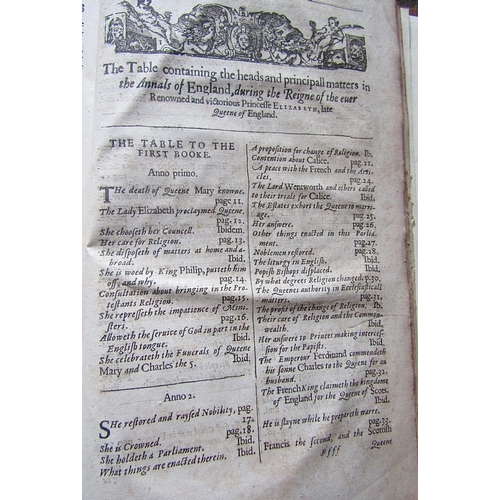 The Table containing the heads and principall matters in
the Annals of England, during the Reigne of the euer
Renowned and victorious Princesse ELIZABETH, late
Queene of England.
THE TABLE TO THE
FIRST BOOKE.
Anno primo.
THe death of Queene Mary knowne.
page 11.
The Lady Elizabeth proclaymed Queene.
pag. 12.
She chooseth her Councell. Ibidem.
Her care for Religion. pag.13.
She disposeth of matters at home and a-
broad. Ibid.
She is woed by King Philip, putteth him
off, and why. pag.14.
Consultation about bringing in the Pro-
testants Religion. pag.15.
She represseth the impatience of Mini-
sters. pag.16.
Alloweth the seruice of God in part in the
English tongue. Ibid.
She celebrateth the Funerals of Queene
Mary and Charles the 5. Ibid.
Anno 2.
SHe restored and raysed Nobility, pag.
17.
She is Crowned. pag.18.
She holdeth a Parliament. Ibid.
What things are enacted therein. Ibid.
A proposition for change of Religion. Ib.
Contention about Calice. pag.21.
A peace with the French and the Arti-
cles. pag.24.
The Lord Wentworth and others called
to their trials for Calice. Ibid.
The Estates exhort the Queene to marri-
age. pag.25.
Her answere. pag.26.
Other things enacted in this Parlia-
ment. pag.27.
Noblemen restored. pag.28.
The liturgy in English. Ibid.
Popish Bishops displaced. Ibid.
By what degrees Religion changed. p.30.
The Queenes authority in Ecclesiasticall
matters. pag.31.
The profit of the change of Religion. Ib.
Their care of Religion and the Common-
wealth. Ibid.
Her answere to Princes making interces-
sion for the Papists. Ibid.
The Emperor Ferdinand commendeth
his sonne Charles to the Queene for an
husband. pag.32.
The French King claimeth the kingdome
of England for the Queene of Scots.
Ibid.
He is slayne while he prepareth warre.
pag.33.
Francis the second, and the Scottish
Ffff Queene